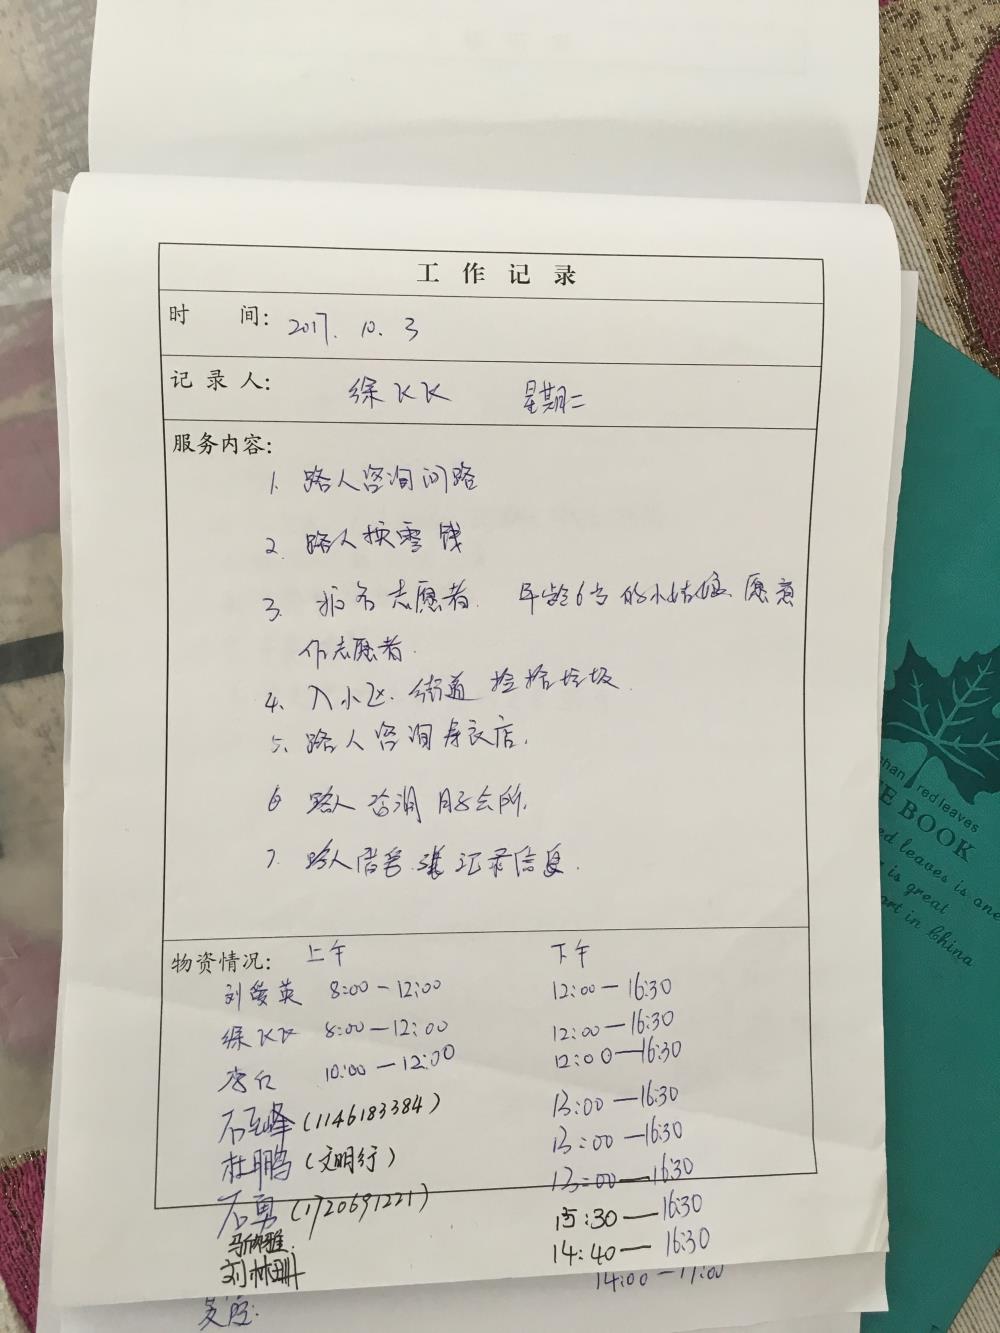 工作记录
时 间: 2017. 10. 3
记录人: 徐 星期二
服务内容:
1. 路人咨询问路
2. 路人换零钱
3. 招募志愿者. 年龄6岁的小姑娘愿意
作志愿者.
4. 入小区. 街道捡拾垃圾.
5. 路人咨询寿衣店.
6 路人咨询月子会所.
7. 路人 记录信息.
物资情况: 上午 下午
刘爱英 8:00-12:00 12:00-16:30
徐 8:00-12:00 12:00-16:30
10:00-12:00 12:00-16:30
石玉峰(1146183384) 13:00-16:30
杜鹏(文明行) 13:00-16:30
石勇(1720691221) 13:00-16:30
马欣雅. 15:30-16:30
刘林 14:40-16:30
14:00-17:00
red leaves
BOOK
red leaves is one
is great
art in China